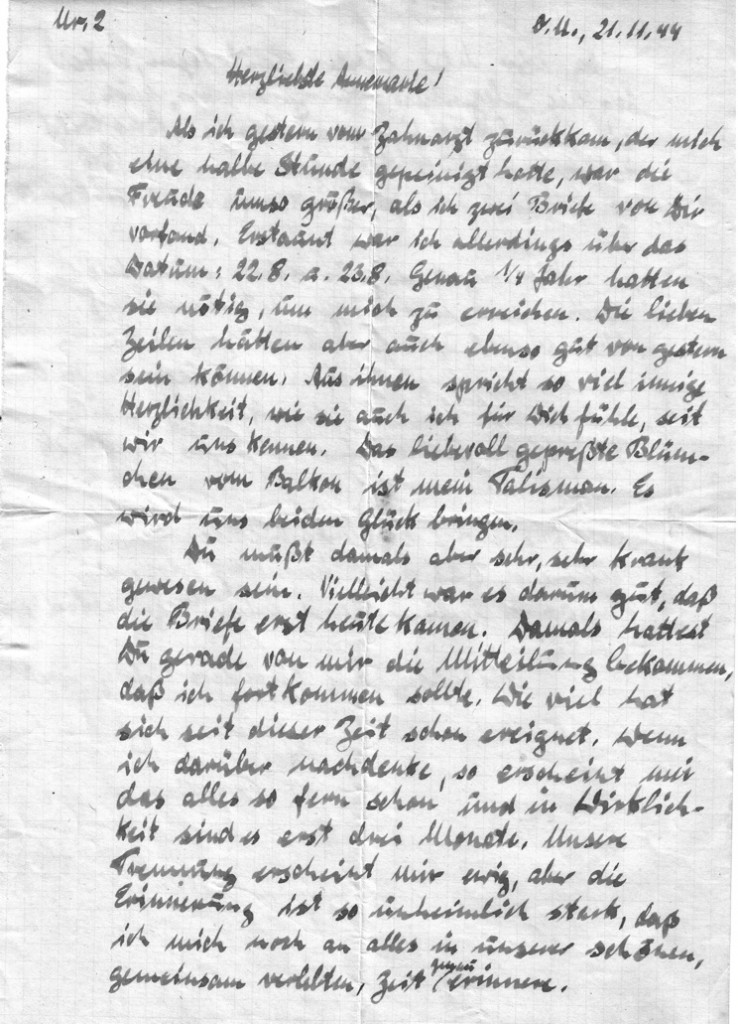 Nr. 2
O.U., 21.11.44
Herzliebste Annemarie!
Als ich gestern vom Zahnarzt zurückkam, der mich
eine halbe Stunde gepeinigt hatte, war die
Freude umso größer, als ich zwei Briefe von Dir
vorfand. Erstaunt war ich allerdings über das
Datum: 22.8. u. 23.8. Genau 1/4 Jahr hatten
sie nötig, um mich zu erreichen. Die lieben
Zeilen hätten aber auch ebenso gut von gestern
sein können. Aus ihnen spricht so viel innige
Herzlichkeit, wie sie auch ich für Dich fühle, seit
wir uns kennen. Das liebevoll gepreßte Blüm-
chen vom Balkon ist mein Talisman. Es
wird uns beiden Glück bringen.
Du mußt damals aber sehr, sehr krank
gewesen sein. Vielleicht war es darum gut, daß
die Briefe erst heute kamen. Damals hattest
Du gerade von mir die Mitteilung bekommen,
daß ich fortkommen sollte. Wie viel hat
sich seit dieser Zeit schon ereignet. Wenn
ich darüber nachdenke, so erscheint mir
das alles so fern schon und in Wirklich-
keit sind es erst drei Monate. Unsere
Trennung erscheint mir ewig, aber die
Erinnerung ist so unheimlich stark, daß
ich mich noch an alles in unserer schönen,
gemeinsam verlebten, Zeit genau erinnere.